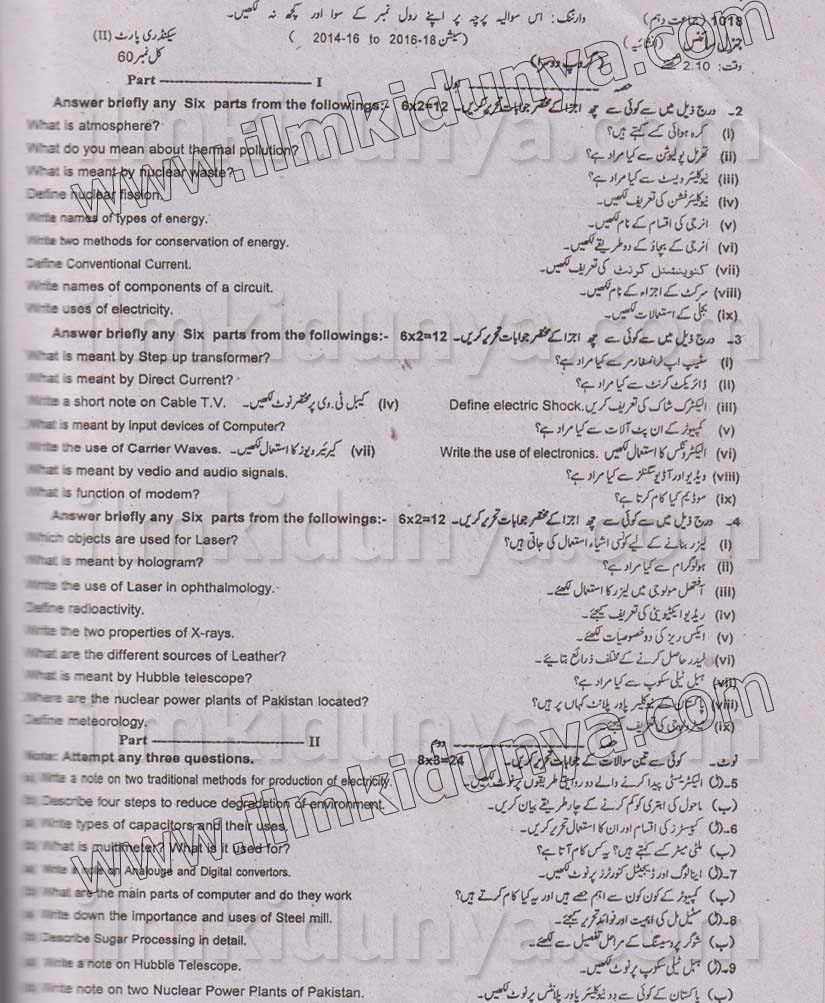 وارننگ: اس سوالیہ پرچہ پر اپنے رول نمبر کے سوا اور کچھ نہ لکھیں۔
1018 (جماعت دہم)
جنرل سائنس (انشائیہ) (سیشن 2014-16 to 2016-18) سیکنڈری پارٹ (II)
وقت: 2.10 گھنٹے (گروپ دوسرا) کل نمبر 60
Part ---------------- I حصہ ---------------- اول
Answer briefly any Six parts from the followings:- 6x2=12 2۔ درج ذیل میں سے کوئی سے چھ اجزا کے مختصر جوابات تحریر کریں۔
What is atmosphere? (i) کرہ ہوائی کسے کہتے ہیں؟
What do you mean about thermal pollution? (ii) تھرمل پولیوشن سے کیا مراد ہے؟
What is meant by nuclear waste? (iii) نیوکلیئر ویسٹ سے کیا مراد ہے؟
Define nuclear fission. (iv) نیوکلیئر فشن کی تعریف لکھیں۔
Write names of types of energy. (v) انرجی کی اقسام کے نام لکھیں۔
Write two methods for conservation of energy. (vi) انرجی کے بچاؤ کے دو طریقے لکھیں۔
Define Conventional Current. (vii) کنوینشنل کرنٹ کی تعریف لکھیں۔
Write names of components of a circuit. (viii) سرکٹ کے اجزاء کے نام لکھیں۔
Write uses of electricity. (ix) بجلی کے استعمالات لکھیں۔
Answer briefly any Six parts from the followings:- 6x2=12 3۔ درج ذیل میں سے کوئی سے چھ اجزا کے مختصر جوابات تحریر کریں۔
What is meant by Step up transformer? (i) سٹیپ اپ ٹرانسفارمر سے کیا مراد ہے؟
What is meant by Direct Current? (ii) ڈائریکٹ کرنٹ سے کیا مراد ہے؟
Write a short note on Cable T.V. (iv) کیبل ٹی۔وی پر مختصر نوٹ لکھیں۔ Define electric Shock. (iii) الیکٹرک شاک کی تعریف کریں
What is meant by Input devices of Computer? (v) کمپیوٹر کے ان پٹ آلات سے کیا مراد ہے؟
Write the use of Carrier Waves. (vii) کیرئیر ویوز کا استعمال لکھیں۔ Write the use of electronics. (vi) الیکٹرونکس کا استعمال لکھیں
What is meant by vedio and audio signals. (viii) ویڈیو اور آڈیو سگنلز سے کیا مراد ہے؟
What is function of modem? (ix) موڈیم کیا کام کرتا ہے؟
Answer briefly any Six parts from the followings:- 6x2=12 4۔ درج ذیل میں سے کوئی سے چھ اجزا کے مختصر جوابات تحریر کریں۔
Which objects are used for Laser? (i) لیزر بنانے کے لیے کونسی اشیاء استعمال کی جاتی ہیں؟
What is meant by hologram? (ii) ہولوگرام سے کیا مراد ہے؟
Write the use of Laser in ophthalmology. (iii) آفتھل مولوجی میں لیزر کا استعمال لکھئے۔
Define radioactivity. (iv) ریڈیو ایکٹیویٹی کی تعریف کیجئے۔
Write the two properties of X-rays. (v) ایکس ریز کی دو خصوصیات لکھئے۔
What are the different sources of Leather? (vi) لیدر حاصل کرنے کے مختلف ذرائع بتائیے۔
What is meant by Hubble telescope? (vii) ہبل ٹیلی سکوپ سے کیا مراد ہے؟
Where are the nuclear power plants of Pakistan located? (viii) پاکستان کے نیوکلیئر پاور پلانٹ کہاں پر ہیں؟
Define meteorology. (ix) میٹرولوجی کی تعریف کیجئے۔
Part ---------------- II حصہ ---------------- دوم
Note: Attempt any three questions. 8x3=24 نوٹ۔ کوئی سے تین سوالات کے جوابات تحریر کریں۔
(a) Write a note on two traditional methods for production of electricity. 5۔(ا) الیکٹریسٹی پیدا کرنے والے دو روایتی طریقوں پر نوٹ لکھیں۔
(b) Describe four steps to reduce degradation of environment. (ب) ماحول کی ابتری کو کم کرنے کے چار طریقے بیان کریں۔
(a) Write types of capacitors and their uses. 6۔(ا) کپیسٹرز کی اقسام اور ان کا استعمال تحریر کریں۔
(b) What is multimeter? What is it used for? (ب) ملٹی میٹر کسے کہتے ہیں؟ یہ کس کام آتا ہے؟
(a) Write a note on Analouge and Digital convertors. 7۔(ا) اینالوگ اور ڈیجیٹل کنورٹرز پر نوٹ لکھیں۔
(b) What are the main parts of computer and do they work (ب) کمپیوٹر کے کون کون سے اہم حصے ہیں اور یہ کیا کام کرتے ہیں؟
(a) Write down the importance and uses of Steel mill. 8۔(ا) سٹیل مل کی اہمیت اور فوائد تحریر کیجئے۔
(b) Describe Sugar Processing in detail. (ب) شوگر پروسیسنگ کے مراحل تفصیل سے لکھئے۔
(a) Write a note on Hubble Telescope. 9۔(ا) ہبل ٹیلی سکوپ پر نوٹ لکھیں۔
(b) Write note on two Nuclear Power Plants of Pakistan. (ب) پاکستان کے کوئی سے دو نیوکلیئر پاور پلانٹس پر نوٹ لکھیں۔
www.ilmkidunya.com
www.ilmkidunya.com
ilmkidunya.com
ilmkidunya.com
ilmkidunya.com
ilmkidunya.com
ilmkidunya.com